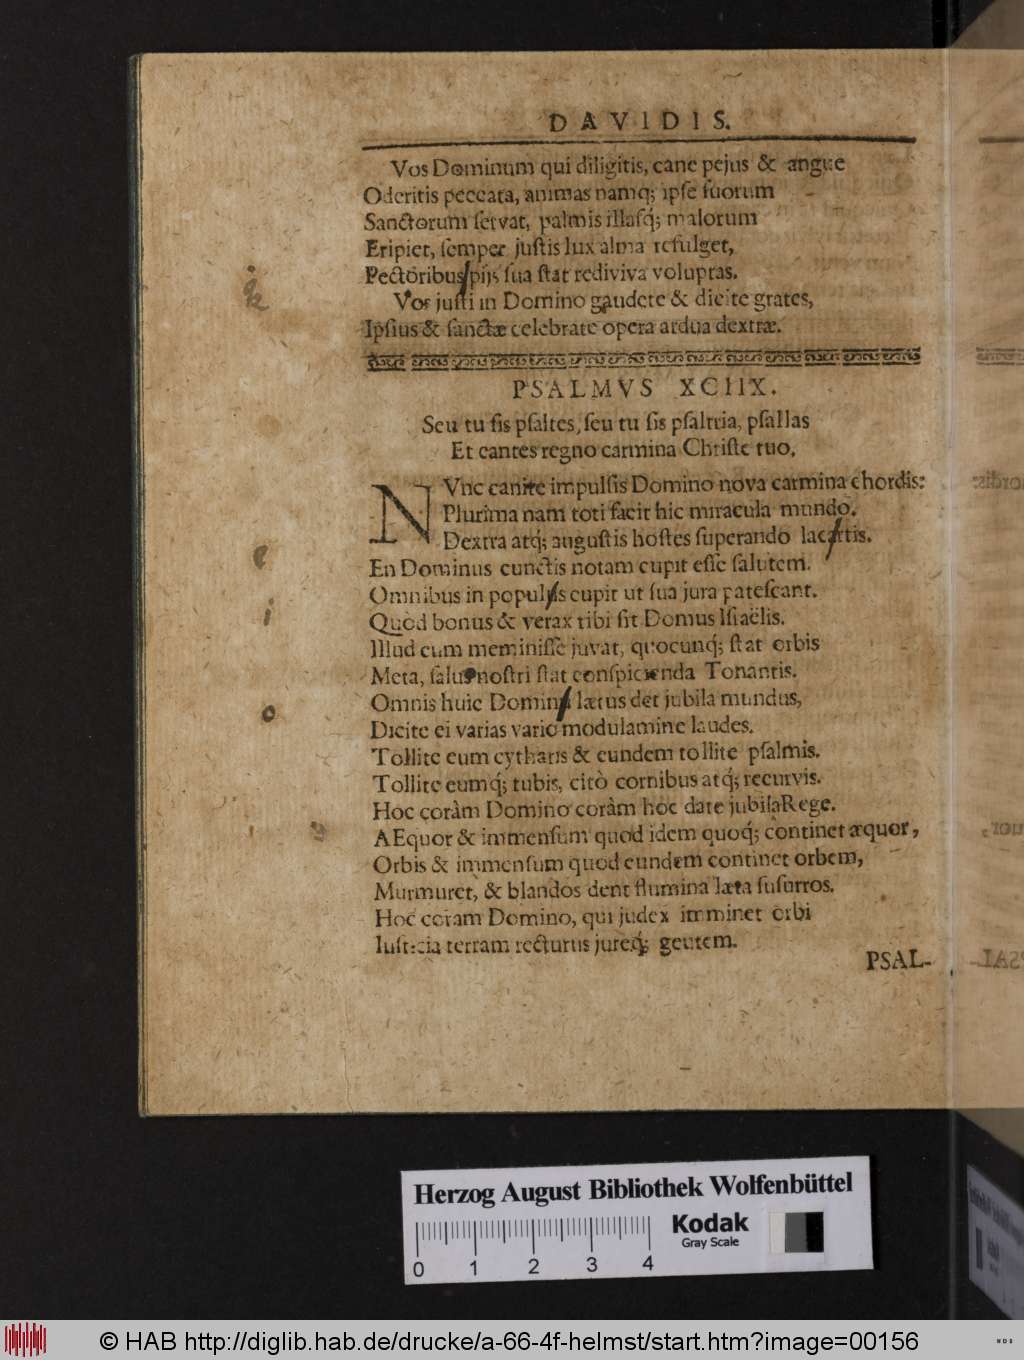 DAVIDIS.
Vos Dominum qui diligitis, cane pejus & angue
Oderitis peccata, animas namq; ipſe ſuorum
Sanctorum ſervat, palmis illaſq́; malorum
Eripiet, ſemper juſtis lux alma refulget,
Pectoribus pijs ſua ſtat rediviva voluptas.
Vos juſti in Domino gaudete & dicite grates,
Ipſius & ſanctæ celebrate opera ardua dextræ.
PSALMVS XCIIX.
Seu tu ſis pſaltes, ſeu tu ſis pſaltria, pſallas
Et cantes regno carmina Chriſte tuo,
k
NVnc canite impulſis Domino nova carmina chordis:
Plurima nam toti facit hic miracula mundo.
Dextra atq́; auguſtis hoſtes ſuperando lacertis.
e
En Dominus cunctis notam cupit eſſe ſalutem.
Omnibus in populis cupit ut ſua jura pateſcant.
i
Quòd bonus & verax tibi ſit Domus Iſraëlis.
Illud cum meminiſſe juvat, quocunq́; ſtat orbis
Meta, ſalus noſtri ſtat conſpicienda Tonantis.
Omnis huic Domino lætus det jubila mundus,
o
Dicite ei varias vario modulamine laudes.
Tollite eum cytharis & eundem tollite pſalmis.
Tollite eumq́; tubis, citò cornibus atq́; recurvis.
Hoc coràm Domino coràm hoc date jubila Rege.
AEquor & immenſum quod idem quoq́; continet æquor,
Orbis & immenſum quod eundem continet orbem,
Murmuret, & blandos dent flumina læta ſuſurros.
Hoc coram Domino, qui judex imminet orbi
Iuſticia terram recturus jureq́; gentem.
PSAL-
Herzog August Bibliothek Wolfenbüttel
Kodak
Gray Scale
0 1 2 3 4
© HAB http://diglib.hab.de/drucke/a-66-4f-helmst/start.htm?image=00156